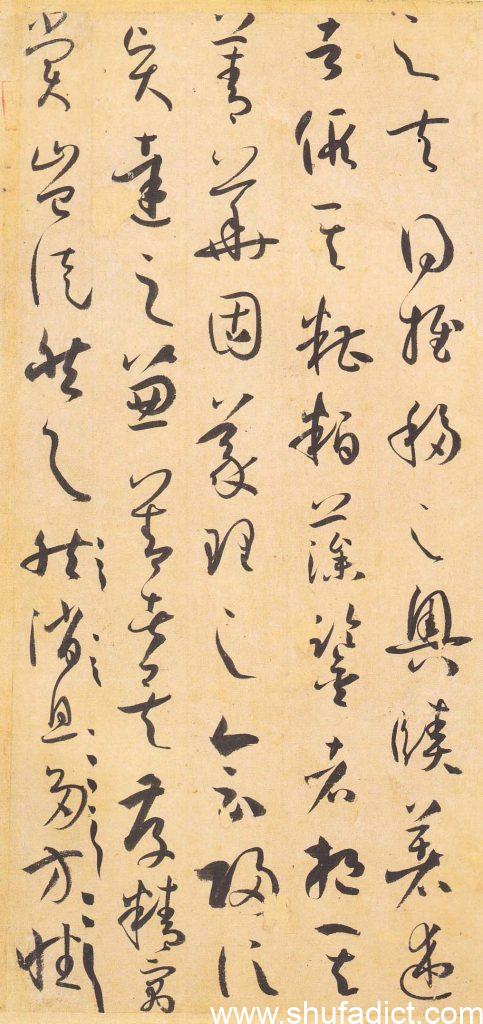 之夫得推移之奧賾著述
者假其糟粕藻鑒者挹其
菁華固義理之會歸信
賢達之兼善者矣存精寓
賞豈徒然與然消息多方性
www.shufadict.com